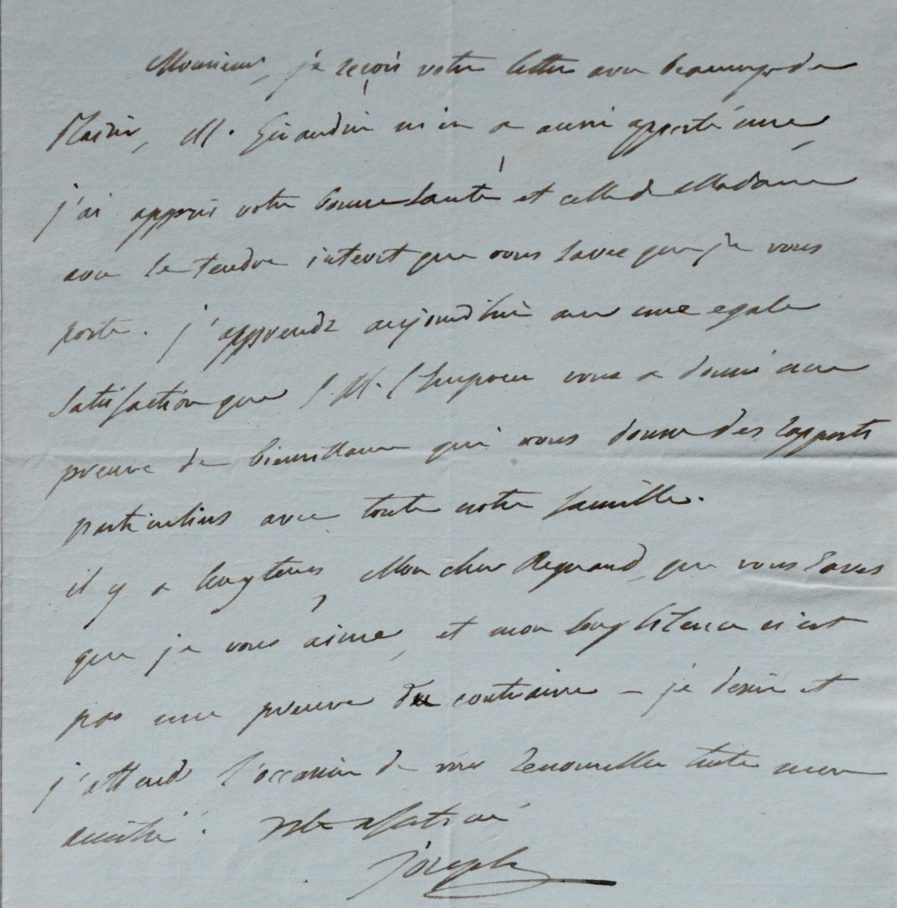 Monsieur, je reçois votre lettre avec beaucoup de
plaisir, M. Girardin m'en a aussi apporté une,
j'ai appris votre bonne santé et celle de Madame
avec le tendre interet que vous savez que je vous
porte. j'apprends aujourdhui avec une egale
satisfaction que S. M. l'Empereur vous a donné une
preuve de bienveillance qui vous donne des rapports
particuliers avec toute notre famille.
il y a longtems, Mon cher Regnaud, que vous savez
que je vous aime, et mon long silence n'est
pas une preuve du contraire – je desire et
j'attend l'occasion de vous renouveller toute mon
amitié. Votre affectioné
Joseph